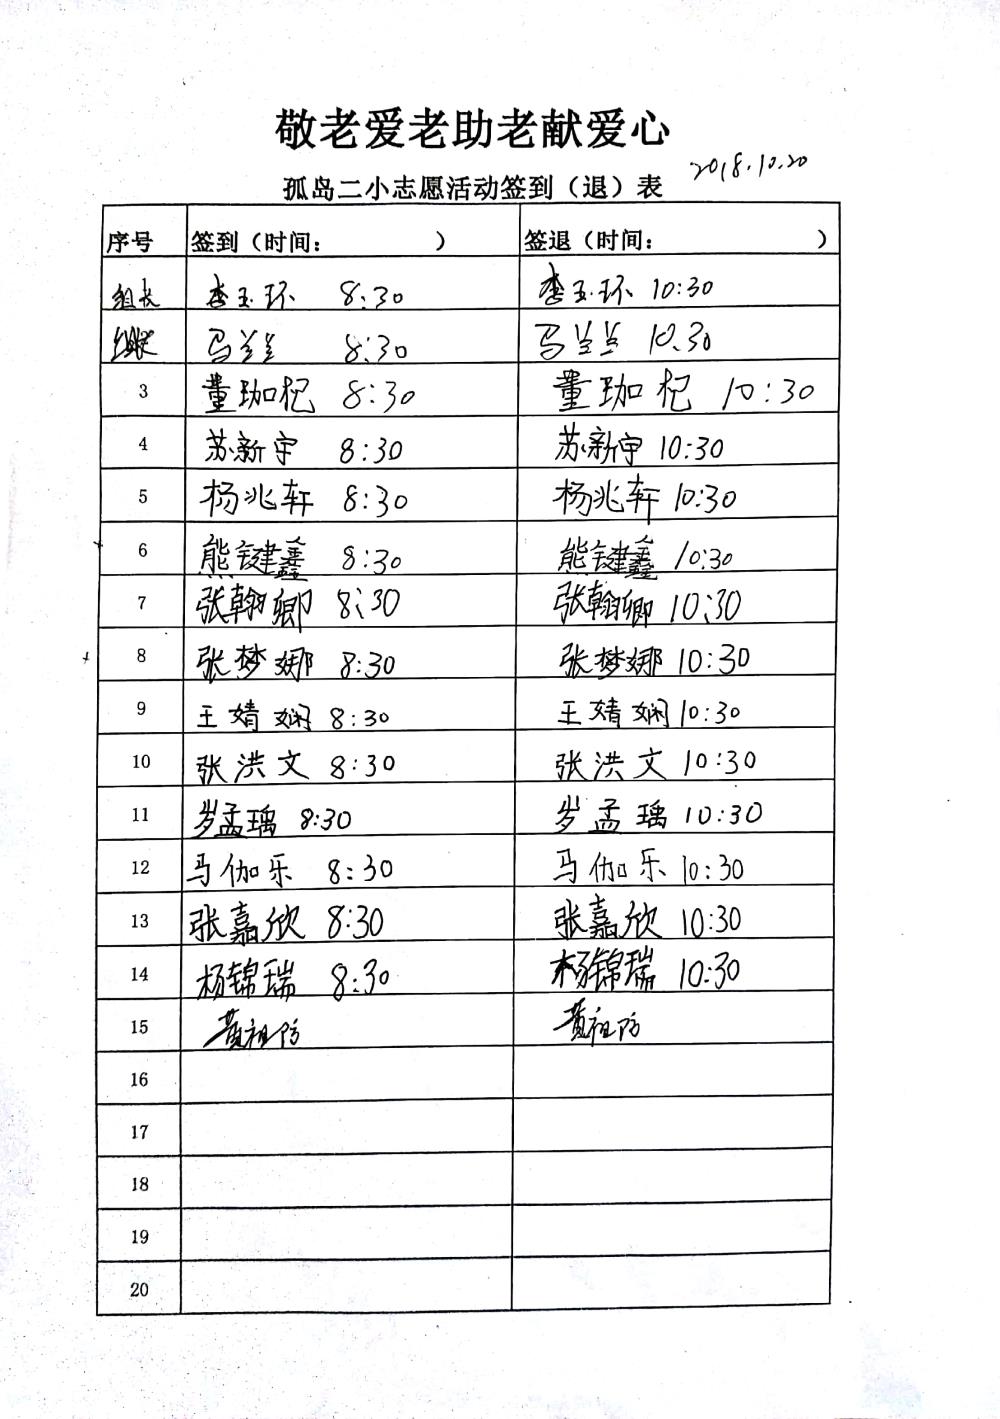 敬老爱老助老献爱心
2018.10.20
孤岛二小志愿活动签到（退）表
序号 签到（时间： ） 签退（时间： ）
组长 李玉环 8:30 李玉环 10:30
马兰兰 8:30 马兰兰 10.30
3 董珈杞 8:30 董珈杞 10:30
4 苏新宇 8:30 苏新宇 10:30
5 杨兆轩 8:30 杨兆轩 10:30
6 熊键鑫 8:30 熊键鑫 10:30
7 张翰卿 8:30 张翰卿 10:30
8 张梦娜 8:30 张梦娜 10:30
9 王婧娴 8:30 王婧娴 10:30
10 张洪文 8:30 张洪文 10:30
11 岁孟瑀 8:30 岁孟瑀 10:30
12 马伽乐 8:30 马伽乐 10:30
13 张嘉欣 8:30 张嘉欣 10:30
14 杨锦瑞 8:30 杨锦瑞 10:30
15 黄祖防 黄祖防
16
17
18
19
20